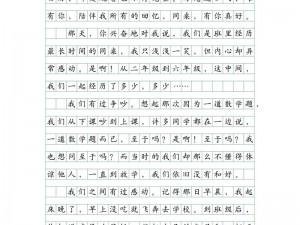 有你，陪伴我所有的回忆。同来，有你真好。
那天，你兴奋地对我说，我们是班里经历
最长时间的同来。我只浅浅一笑。但内心却异
常感动。是啊！从二年级到六年级，这中间，
我们一起经历了多少，多少……
我们有过争吵。想起那次因为一道数学题，
我们从下课吵到上课。许多同学都在一边说，
一道数学题而已，至于吗？是啊！至于吗？我
也想问至于吗？而当时的我们却那么不懂得体
谅他人。一直到放学，我们依旧没有和好。
我们之间有过感动。记得那日早晨，我起
床晚了，早上没吃就飞奔去学校。到班级后，